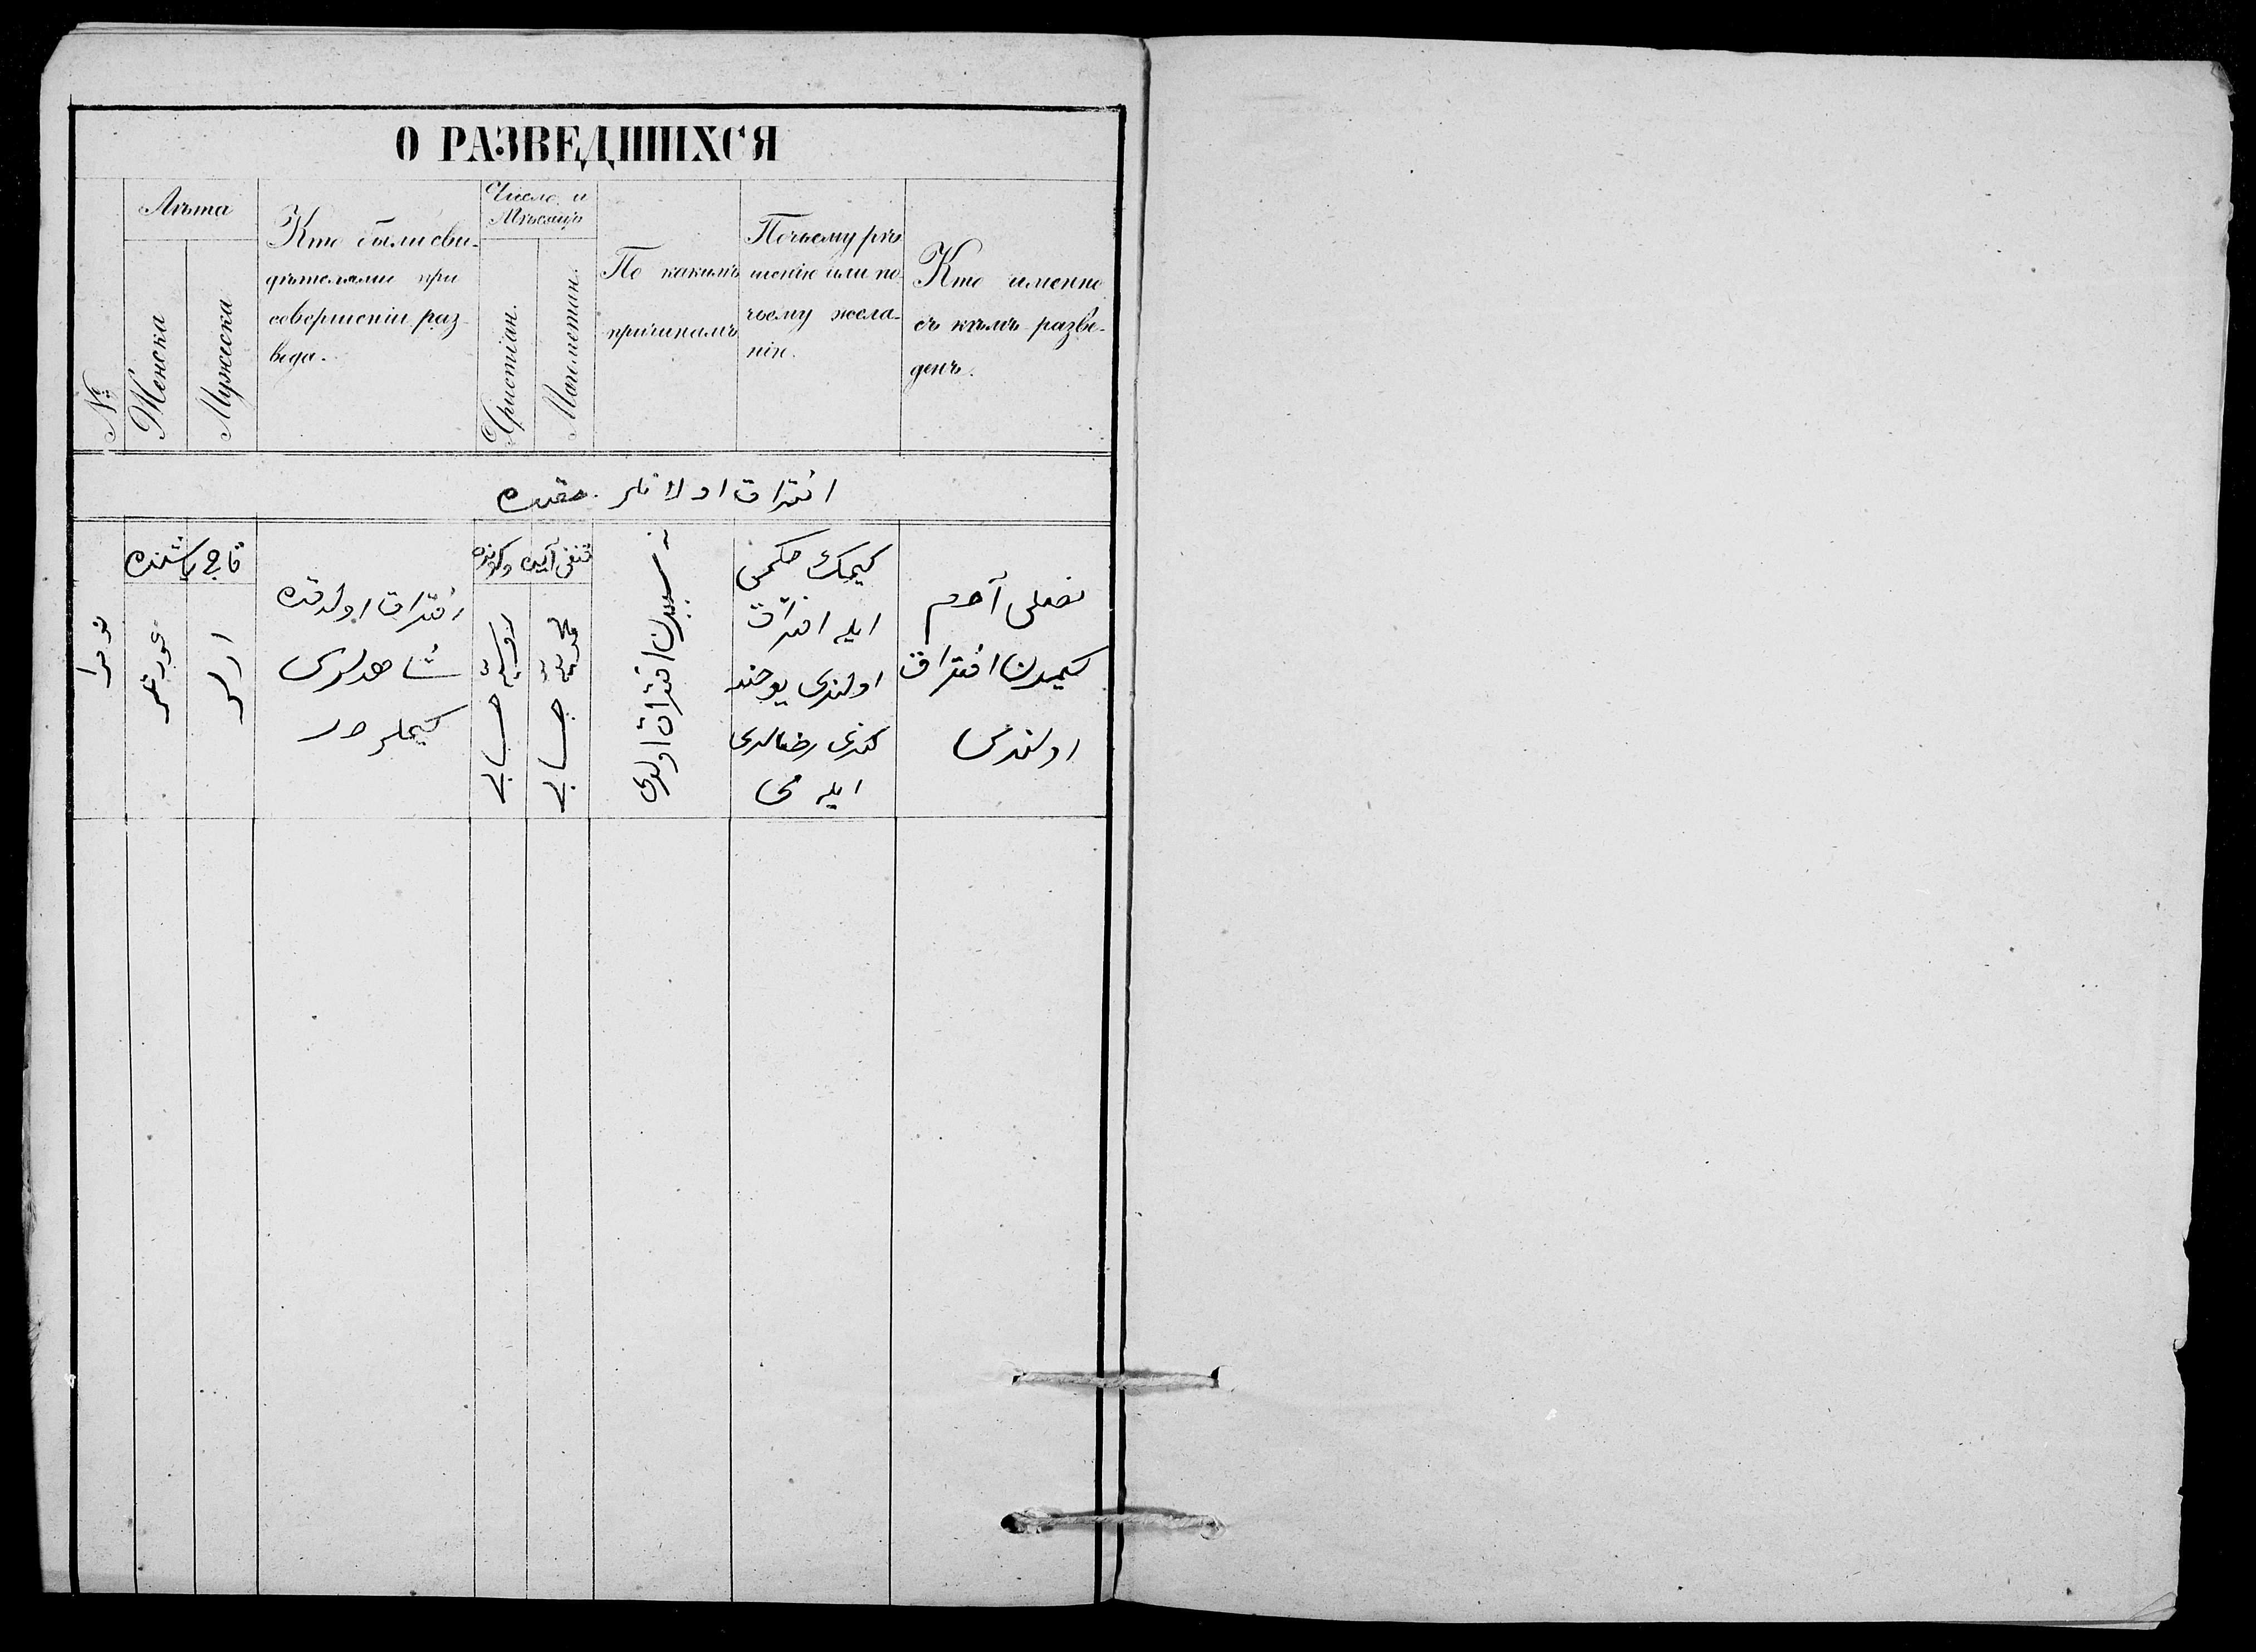 О РАЗВЕДШИХСЯ
№
Лѣта
Женска
Мужеска
Кто были сви-
дѣтелями при
совершеніи раз-
вода.
Число и
Мѣсяцъ
Христіан.
Магометан.
По какимъ
причинамъ
По чьему рѣ-
шенію или по
чьему жела-
нію.
Кто именно
съ кѣмъ разве-
денъ.
افتراق اولانلر حقنده
نومرا
قاچ یاشنده
عورتلر
ارلر
افتراق اولدقده
شاهدلری
کیملر در
قنغی آیده و کونده
روسیه حسابی
محمدیه حسابی
نه سببدن افتراق اولدی
کیمک حکمی
ایله افتراق
اولندی یوخسه
کندی رضالری
ایله می
نصلی آدم
کیمدن افتراق
اولندی